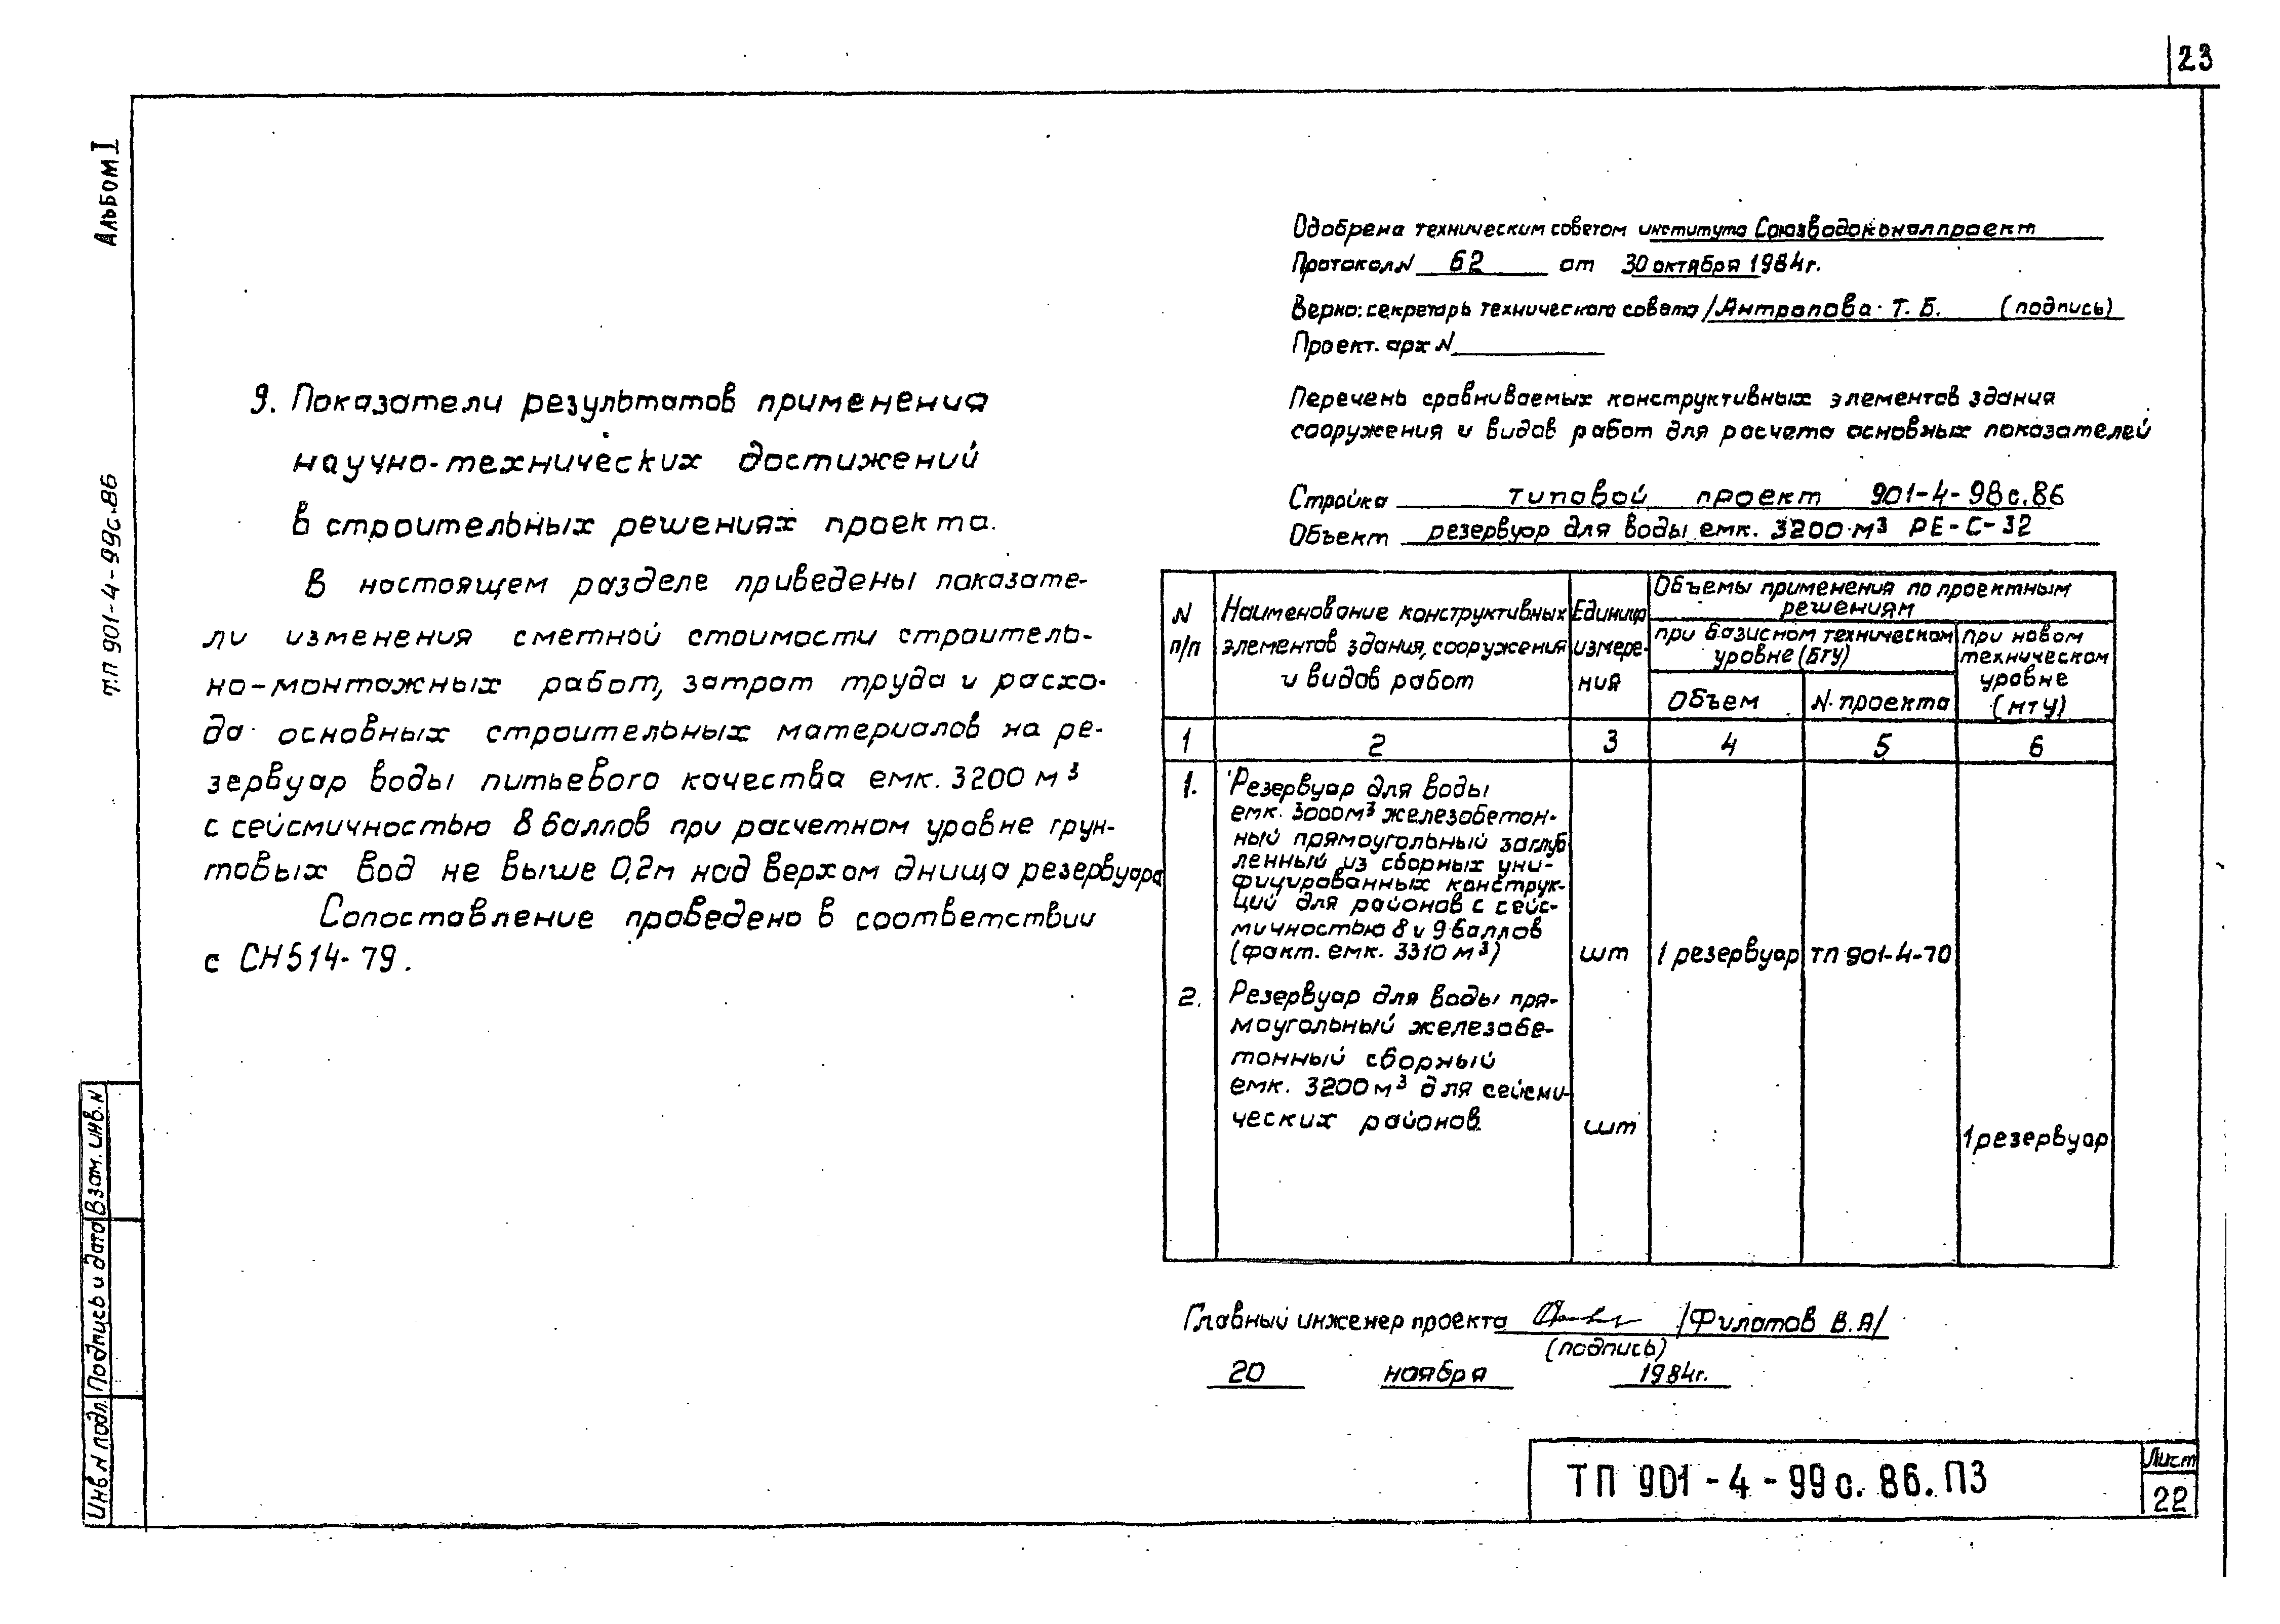 23
Альбом I
ТП 901-4-99с.86
9. Показатели результатов применения
научно-технических достижений
в строительных решениях проекта.
В настоящем разделе приведены показате-
ли изменения сметной стоимости строитель-
но-монтажных работ, затрат труда и расхо-
да основных строительных материалов на ре-
зервуар воды питьевого качества емк. 3200 м³
с сейсмичностью 8 баллов при расчетном уровне грун-
товых вод не выше 0,2м над верхом днища резервуара
Сопоставление проведено в соответствии
с СН514-79.
Одобрена техническим советом института Союзводоканалпроект
Протокол N 62 от 30 октября 1984г.
Верно: секретарь технического совета /Антропова Т.Б. (подпись)
Проект. арх N
Перечень сравниваемых конструктивных элементов здания
сооружения и видов работ для расчета основных показателей
Стройка типовой проект 901-4-98с.86
Объект резервуар для воды емк. 3200 м³ РЕ-С-32
N п/п
Наименование конструктивных
элементов здания, сооружения
и видов работ
Единица
измере-
ния
Объемы применения по проектным
решениям
при базисном техническом
уровне (БТУ)
Объем
N проекта
при новом
техническом
уровне
(НТУ)
1 2 3 4 5 6
1. Резервуар для воды
емк. 3000м³ железобетон-
ный прямоугольный заглуб
ленный из сборных уни-
фицированных конструк-
ций для районов с сейс-
мичностью 8 и 9 баллов
(факт. емк. 3310 м³) шт 1 резервуар ТП 901-4-70
2. Резервуар для воды пря-
моугольный железобе-
тонный сборный
емк. 3200м³ для сейсми-
ческих районов шт 1 резервуар
Главный инженер проекта /Филатов В.А/
(подпись)
20 ноября 1984г.
Взам. инв. N
Подпись и дата
Инв N подл.
ТП 901-4-99с.86.ПЗ
Лист
22